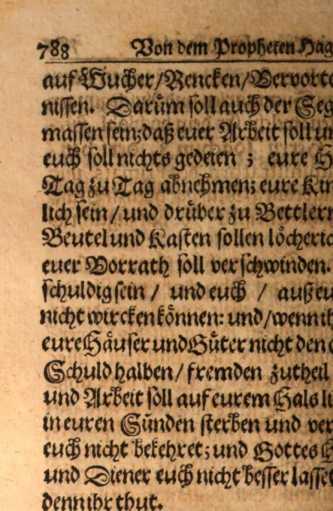 788 Von dem Propheten Hag
auf Wucher/Rencken/Vervorte
nissen. Darům soll auch der Seg
massen sein; daß euer Arbeit soll u
euch soll nichts gedeien; eure H
Tag zu Tag abnehmen; eure Kin
lich sein/und drůber zu Bettlern
Beutel und Kasten sollen lőchericht
euer Vorrath soll verschwinden.
schuldig sein / und euch / auß eu
nicht wircken kőnnen: und/wenn ih
eure Håuser und Gůter nicht den e
Schuld halben/fremden zutheil
und Arbeit soll auf eurem Hals li
in euren Sůnden sterben und ver
euch nicht bekehret; und Gottes
und Diener euch nicht besser lasset
denn ihr thut.